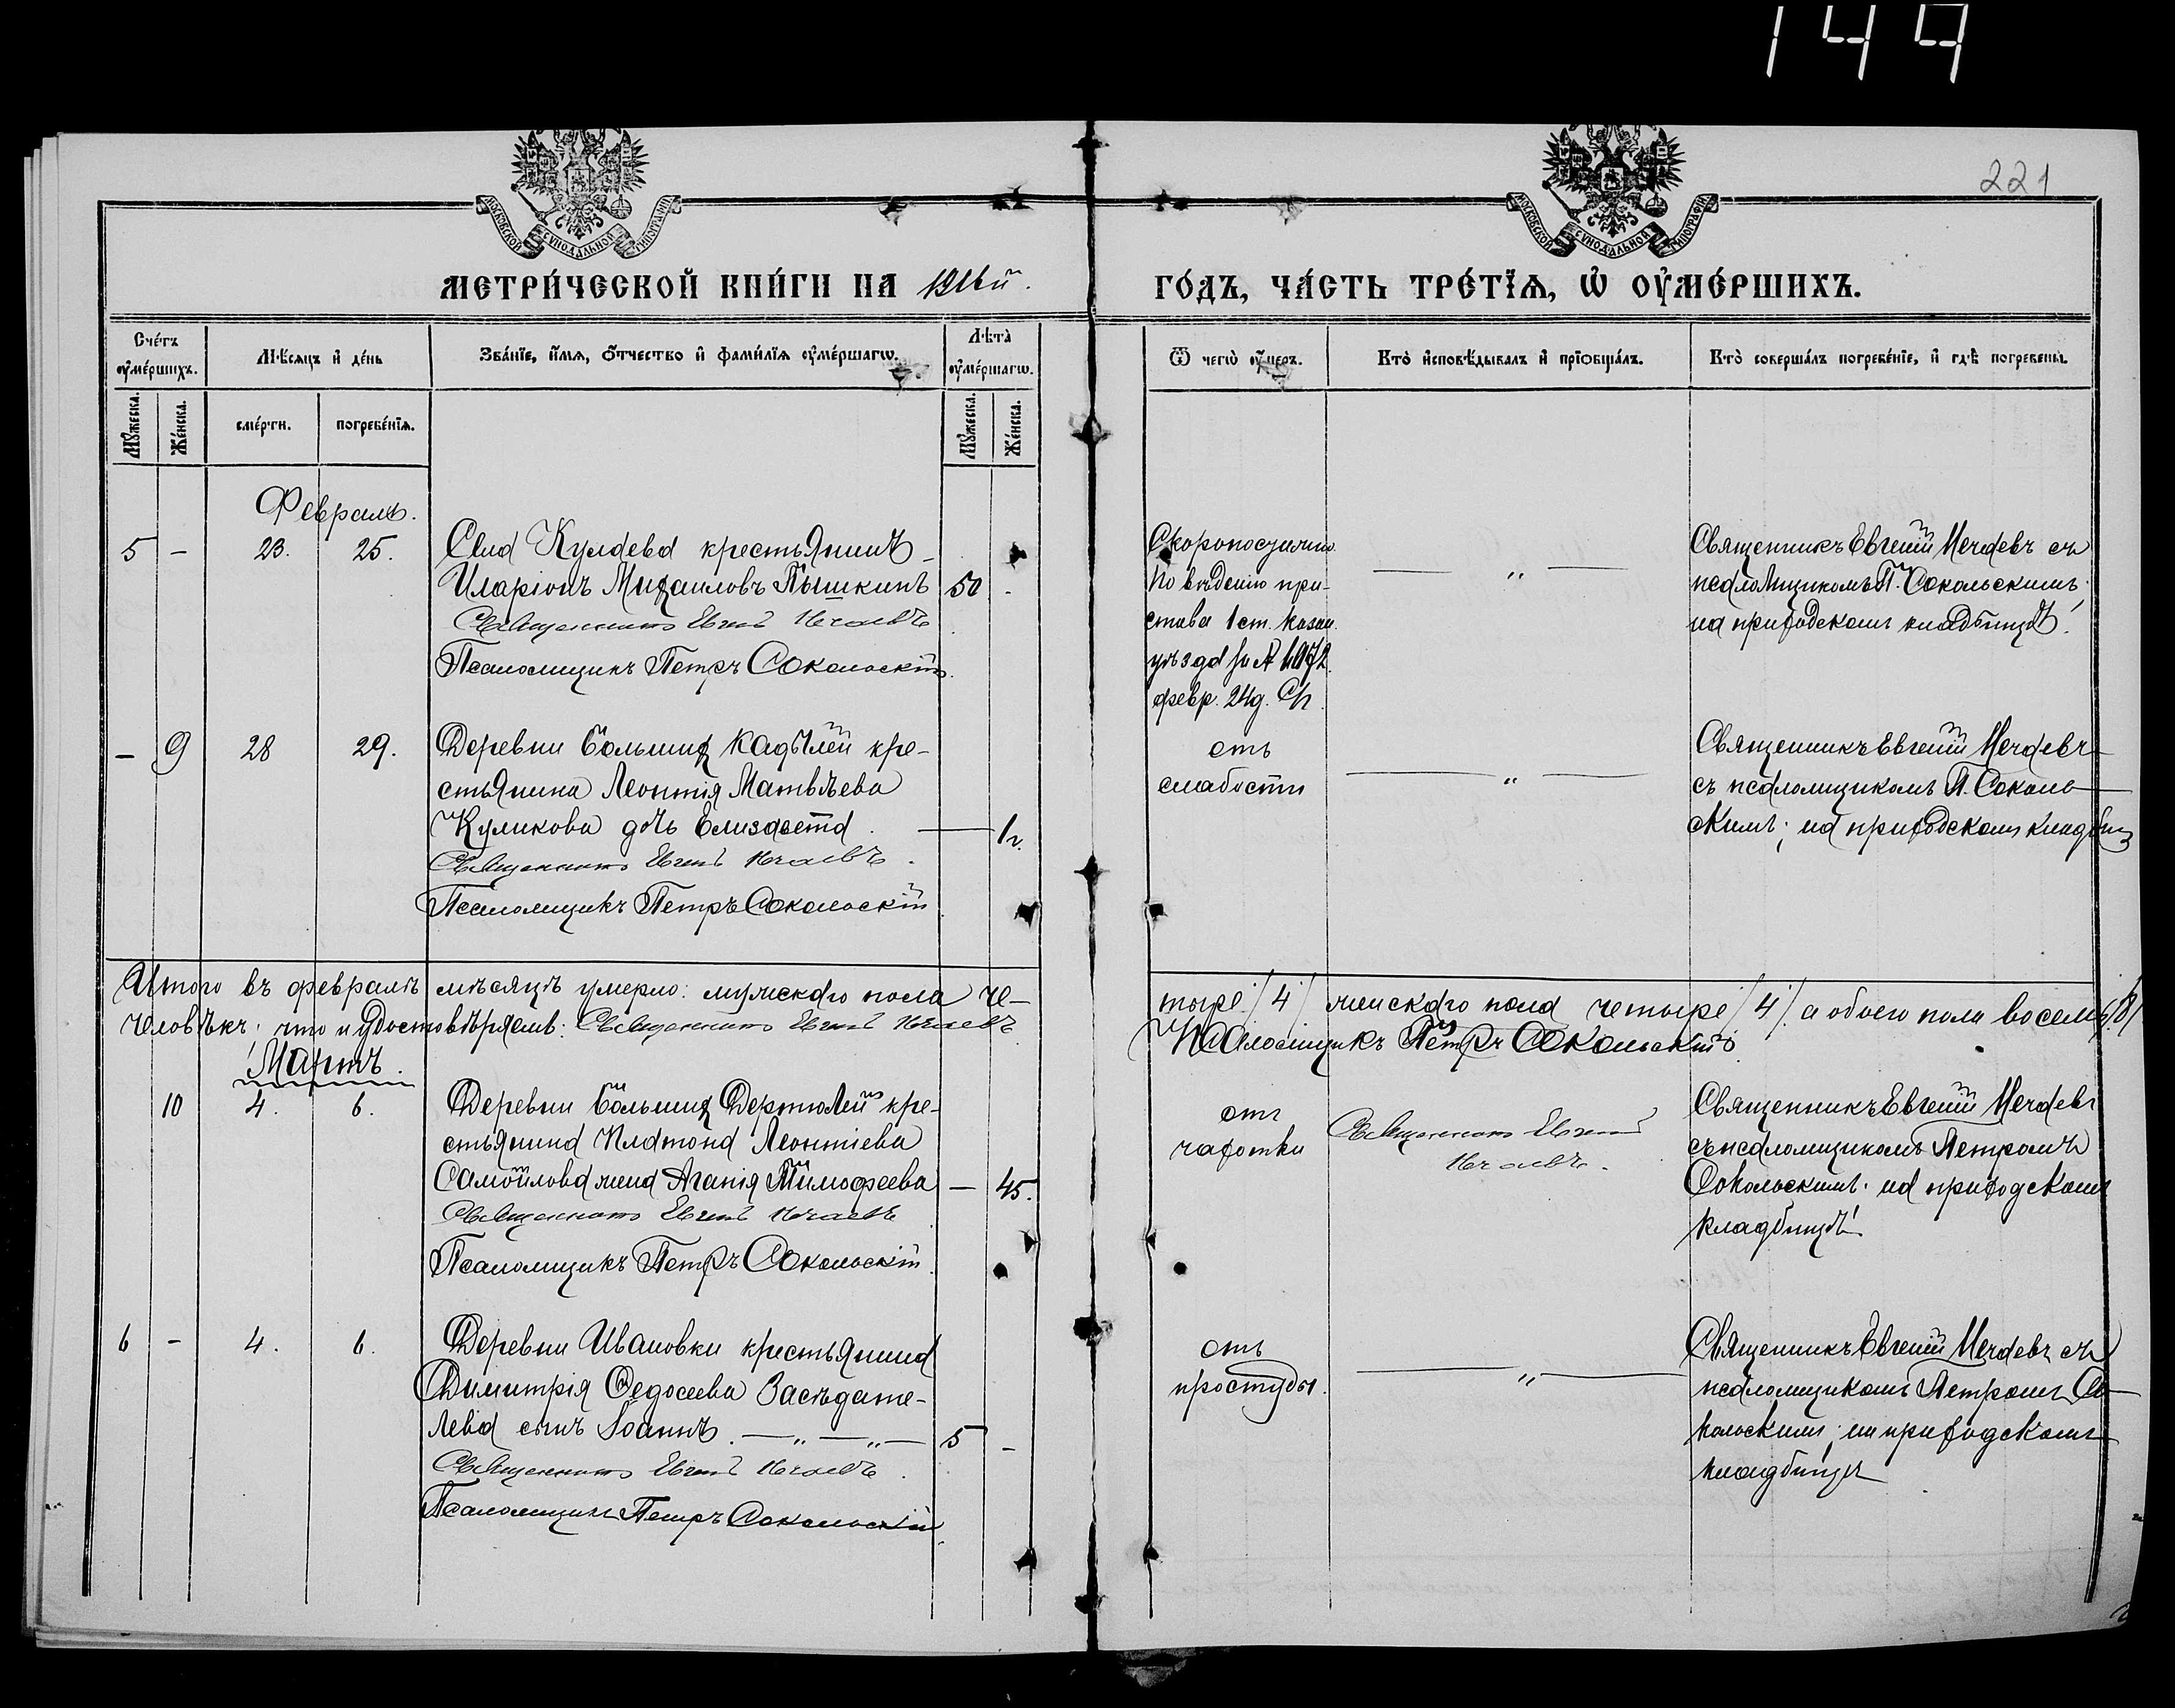 149
221
МОСКОВСКОЙ СѴНОДАЛЬНОЙ ТИПОГРАФІИ
МОСКОВСКОЙ СѴНОДАЛЬНОЙ ТИПОГРАФІИ
МЕТРИ́ЧЕСКОЙ КНИ́ГИ НА 1916й.
ГО́ДЪ, ЧА́СТЬ ТРЕ́ТЇѦ, Ѡ҆ ОУ҆МЕ́РШИХЪ.
Сче́тъ оу҆ме́ршихъ.
Мѣ́сяцъ и҆ де́нь
Зва́нїе, и҆́мѧ, ѻ҆́тчество и҆ фами́лїѧ оу҆ме́ршагѡ.
Лѣ́та оу҆ме́ршагѡ.
Ѿ чегѡ̀ оу҆́меръ.
Кто̀ и҆сповѣ́дывалъ и҆ прїѡбща́лъ.
Кто̀ соверша́лъ погребе́нїе, и҆ гдѣ̀ погребены̀.
Мꙋ́жеска.
Же́нска.
сме́рти.
погребе́нїѧ.
Мꙋ́жеска.
Же́нска.
Февраль.
5 - 23. 25. Села Кулаева крестьянинъ
Иларіонъ Михаиловъ Пышкинъ 50 -
Священникъ Евгеній Нечаевъ
Псаломщикъ Петръ Сокольскій.
Скоропостижно
по вѣденію при-
става 1 ст. Казан.
уѣзда за №
февр. 24д.
— „ —
Священникъ Евгеній Нечаевъ съ
псаломщикомъ П. Сокольскимъ;
на приходскомъ кладбищѣ.
- 9 28 29. Деревни Большихъ Кадылей кре-
стьянина Леонтія Матвѣева
Куликова дочь Елизавета. — 1г.
Священникъ Евгеній Нечаевъ.
Псаломщикъ Петръ Сокольскій
отъ
слабости
— „ —
Священникъ Евгеній Нечаевъ
съ псаломщикомъ П. Соколь-
скимъ; на приходскомъ кладбищ
Итого въ февралѣ мѣсяцѣ умерло: мужского пола че-
тыре /4/ женского пола четыре /4/. а обоего пола восемь /8/
человѣкъ; что и удостовѣряемъ: Священникъ Евгеній Нечаевъ
Псаломщикъ Петръ Сокольскій
Мартъ.
10 4. 6. Деревни Большихъ Дертюлей кре-
стьянина Платона Леонтіева
Самойлова жена Агапія Тимофеева — 45.
Священникъ Евгеній Нечаевъ
Псаломщикъ Петръ Сокольскій
отъ
чахотки
Священникъ Евгеній
Нечаевъ.
Священникъ Евгеній Нечаевъ
съ псаломщикомъ Петромъ
Сокольскимъ; на приходскомъ
кладбищѣ
6 - 4. 6. Деревни Ивановки крестьянина
Димитрія Федосеева Засѣдате-
лева сынъ Іоаннъ. — „ — „ — 5 -
Священникъ Евгеній Нечаевъ.
Псаломщикъ Петръ Сокольскій
отъ
простуды.
— „ —
Священникъ Евгеній Нечаевъ съ
псаломщикомъ Петромъ Со-
кольскимъ; на приходскомъ
кладбищѣ